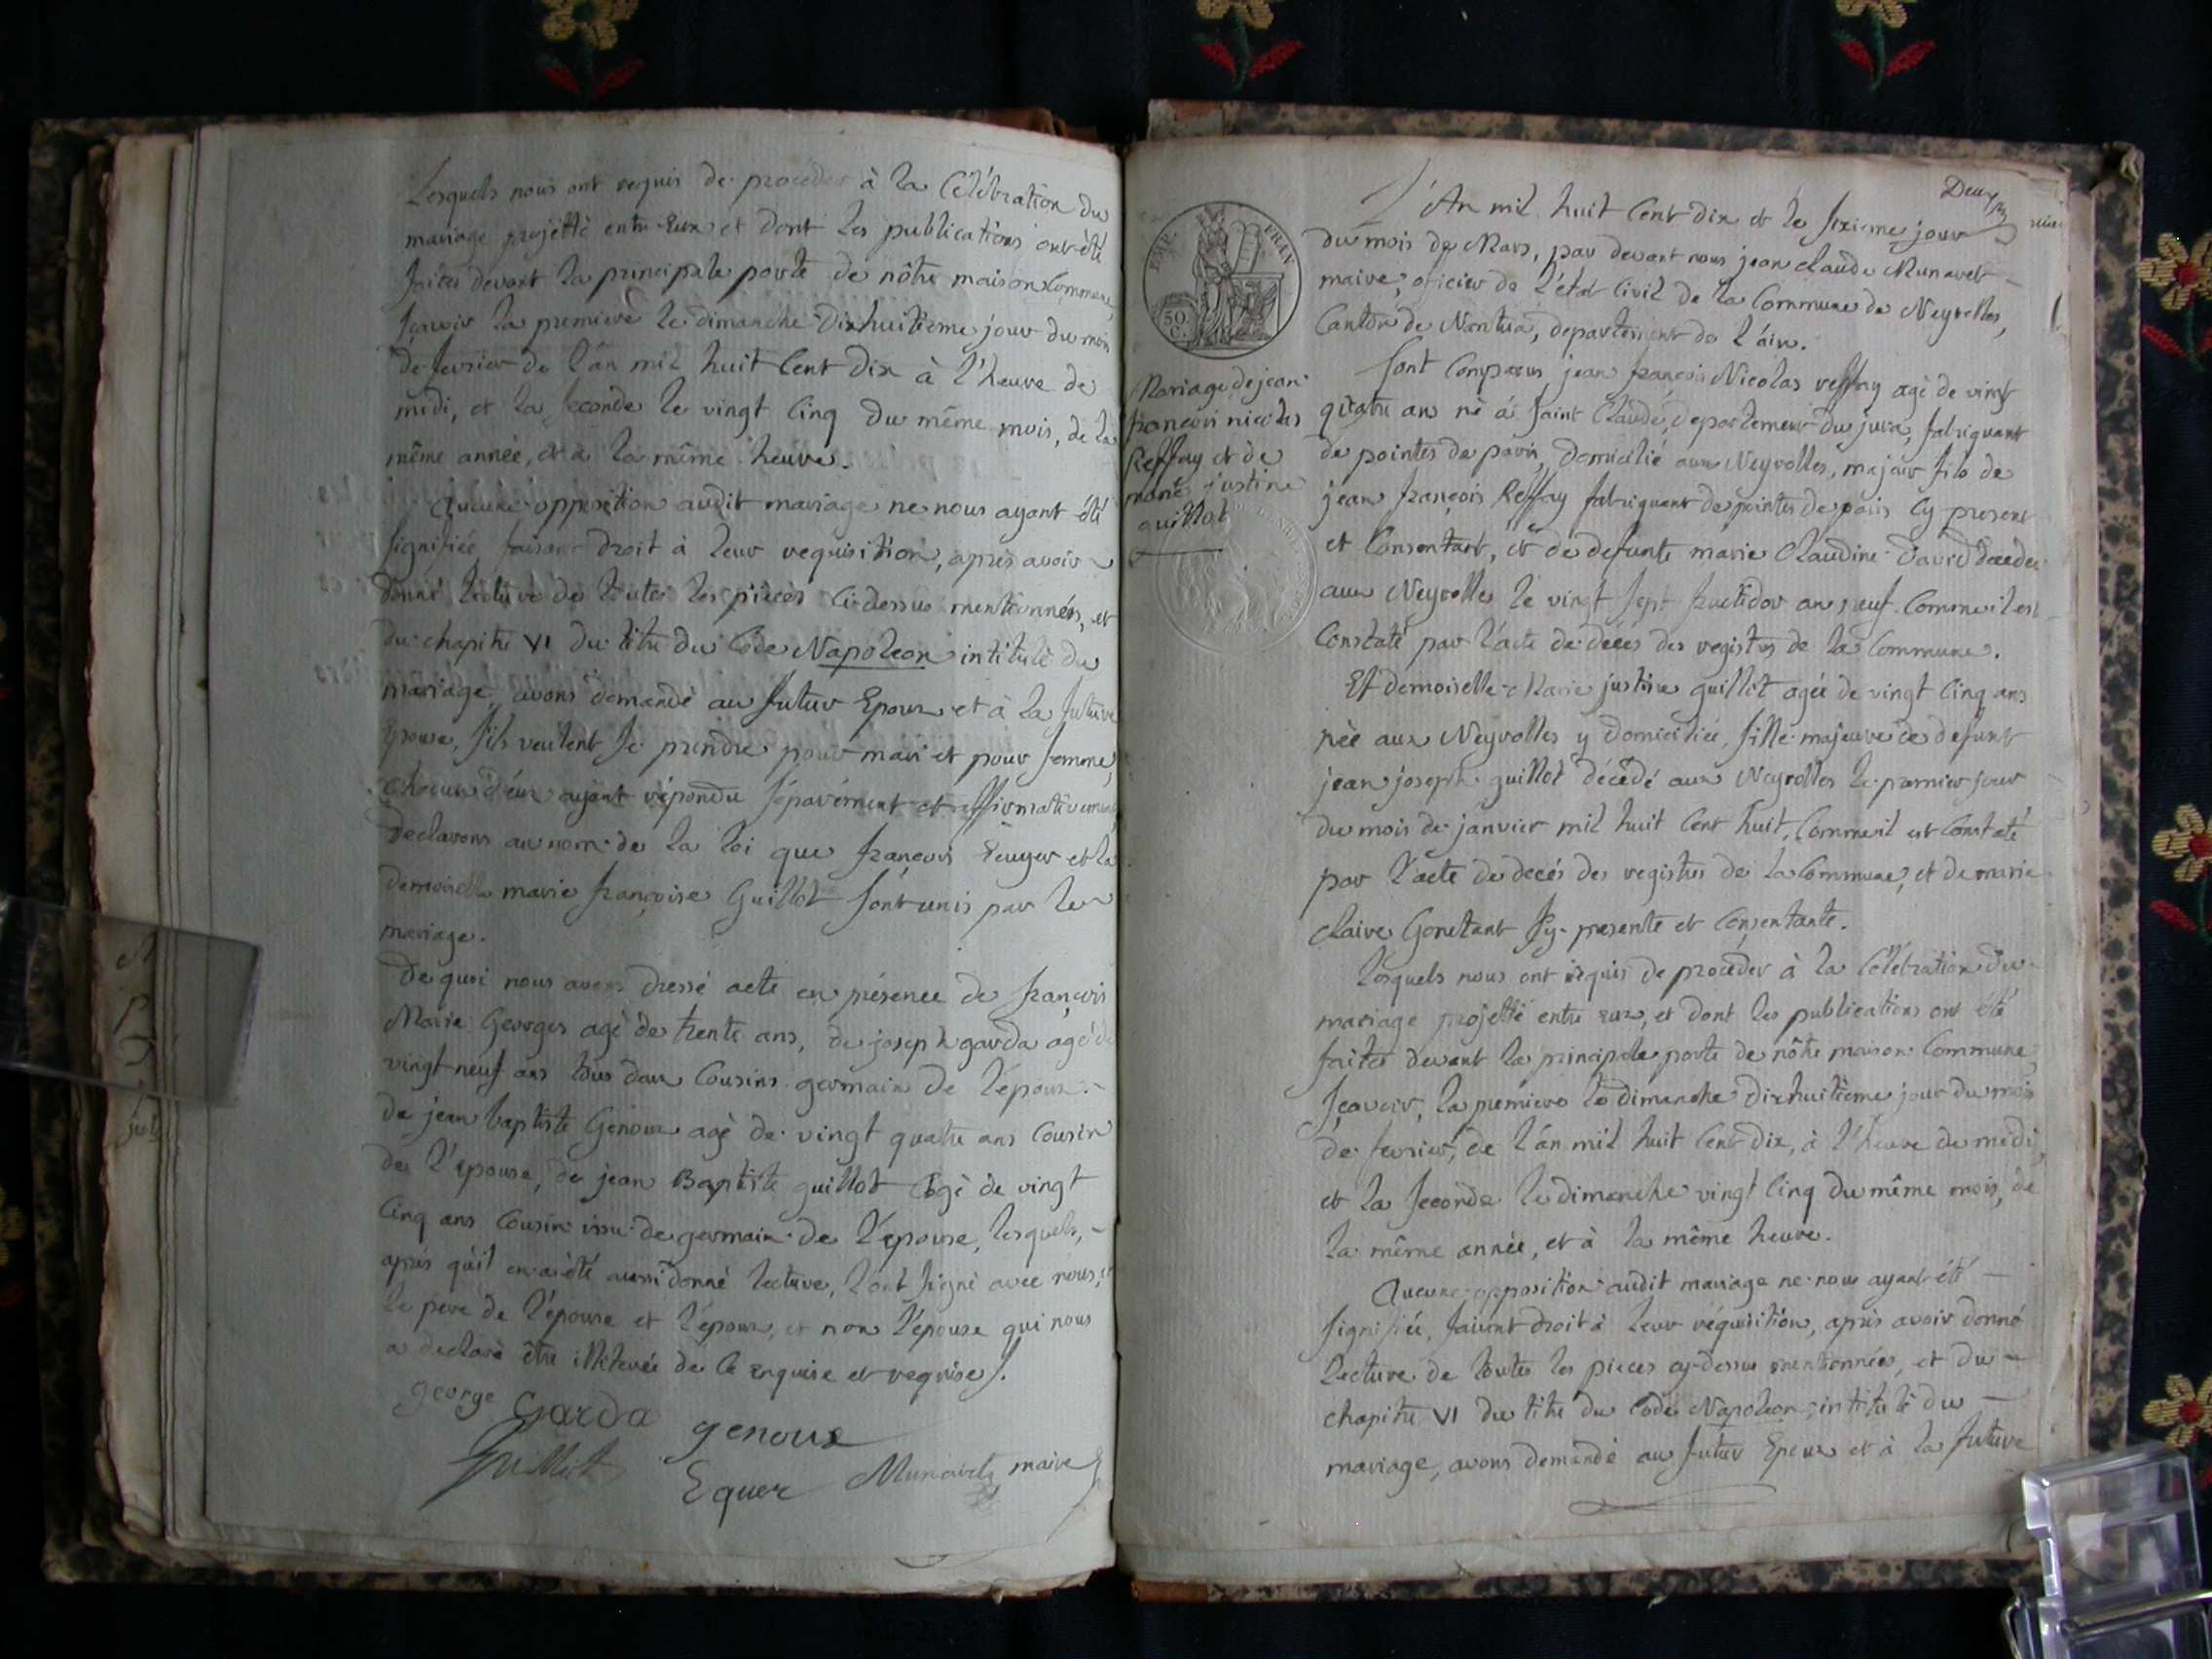 Lesquels nous ont requis de proceder à la Célébration du
mariage projetté entre Eux et dont les publications ont été
faites devant la principale porte de nôtre maison Commune,
sçavoir la premiere le dimanche Dixhuitieme jour du mois
de fevrier de l'an mil huit Cent Dix à l'heure de
midi, et la seconde le vingt Cinq du même mois, de la
même année, et à la même heure.
Aucune opposition audit mariage ne nous ayant été
signifiée, faisant droit à leur requisition, après avoir
donné lecture de toutes les pièces Ci-dessus mentionnées, et
du chapitre VI du titre du Code Napoleon intitulé du
mariage, avons demandé au futur Epoux et à la future
Epouse, s'ils veulent se prendre pour mari et pour femme,
chacun d'eux ayant répondu séparément et affirmativement,
declarons au nom de la loi que françois Ecuyer et la
demoiselle marie françoise Guillot sont unis par le
mariage.
De quoi nous avons dressé acte en présence de françois
Marie Georges agé de trente ans, de joseph garda agé de
vingt neuf ans tous deux Cousins germain de l'époux.
de jean baptiste Genoux agé de vingt quatre ans Cousin
de l'Epouse, de jean Baptiste guillot agé de vingt
Cinq ans Cousin issu de germain de l'épouse, lesquels,
après qu'il en a été aussi donné lecture, l'ont signé avec nous, et
le pere de l'épouse et l'époux, et non l'épouse qui nous
a declaré être illiterée de ce enquise et requise.
george Garda genoux
Guillot Equer Munaret maire
Deux
L'An mil huit Cent dix et le sixieme jour
du mois de Mars, par devant nous jean claude Munaret
maire, oficier de l'état Civil de la Commune de Neyrolles,
Canton de Nantua, departement de l'ain.
EMP. FRAN
50
C.
Mariage de jean
françois nicolas
Reffay et de
marie justine
guillot
Sont Comparus jean françois Nicolas reffay agé de vingt
quatre ans né à Saint Claude, departement du jura, fabriquant
de pointes de paris, domicilié aux Neyrolles, majeur fils de
jean françois Reffay fabriquant de pointes de paris Cy present
et Consentant, et de defunte marie Claudine David décedée
aux Neyrolles le vingt sept fructidor an neuf. Comme il est
Constaté par l'acte de décès des registres de la Commune.
Et demoiselle Marie justine guillot agée de vingt Cinq ans
née aux Neyrolles y domiciliée, fille majeure de defunt
jean joseph guillot décédé aux Neyrolles le premier jour
du mois de janvier mil huit Cent huit, Comme il est Constaté
par l'acte de decés des registres de la Commune, et de marie
claire Gonetant Cy-presente et Consentante.
Lesquels nous ont requis de procéder à la Célébration du
mariage projetté entre eux, et dont les publications ont été
faites devant la principale porte de nôtre maison Commune,
sçavoir, la premiere le dimanche dixhuitieme jour du mois
de fevrier, de l'an mil huit Cent dix, à l'heure de midi,
et la seconde le dimanche vingt Cinq du même mois, de
la même année, et à la même heure.
Aucune opposition audit mariage ne nous ayant été
signifiée, faisant droit à leur réquisition, après avoir donné
lecture de toutes les pieces cy-dessus mentionnées, et du
chapitre VI du titre du Code Napoleon, intitulé du
mariage, avons demandé au futur Epoux et à la future